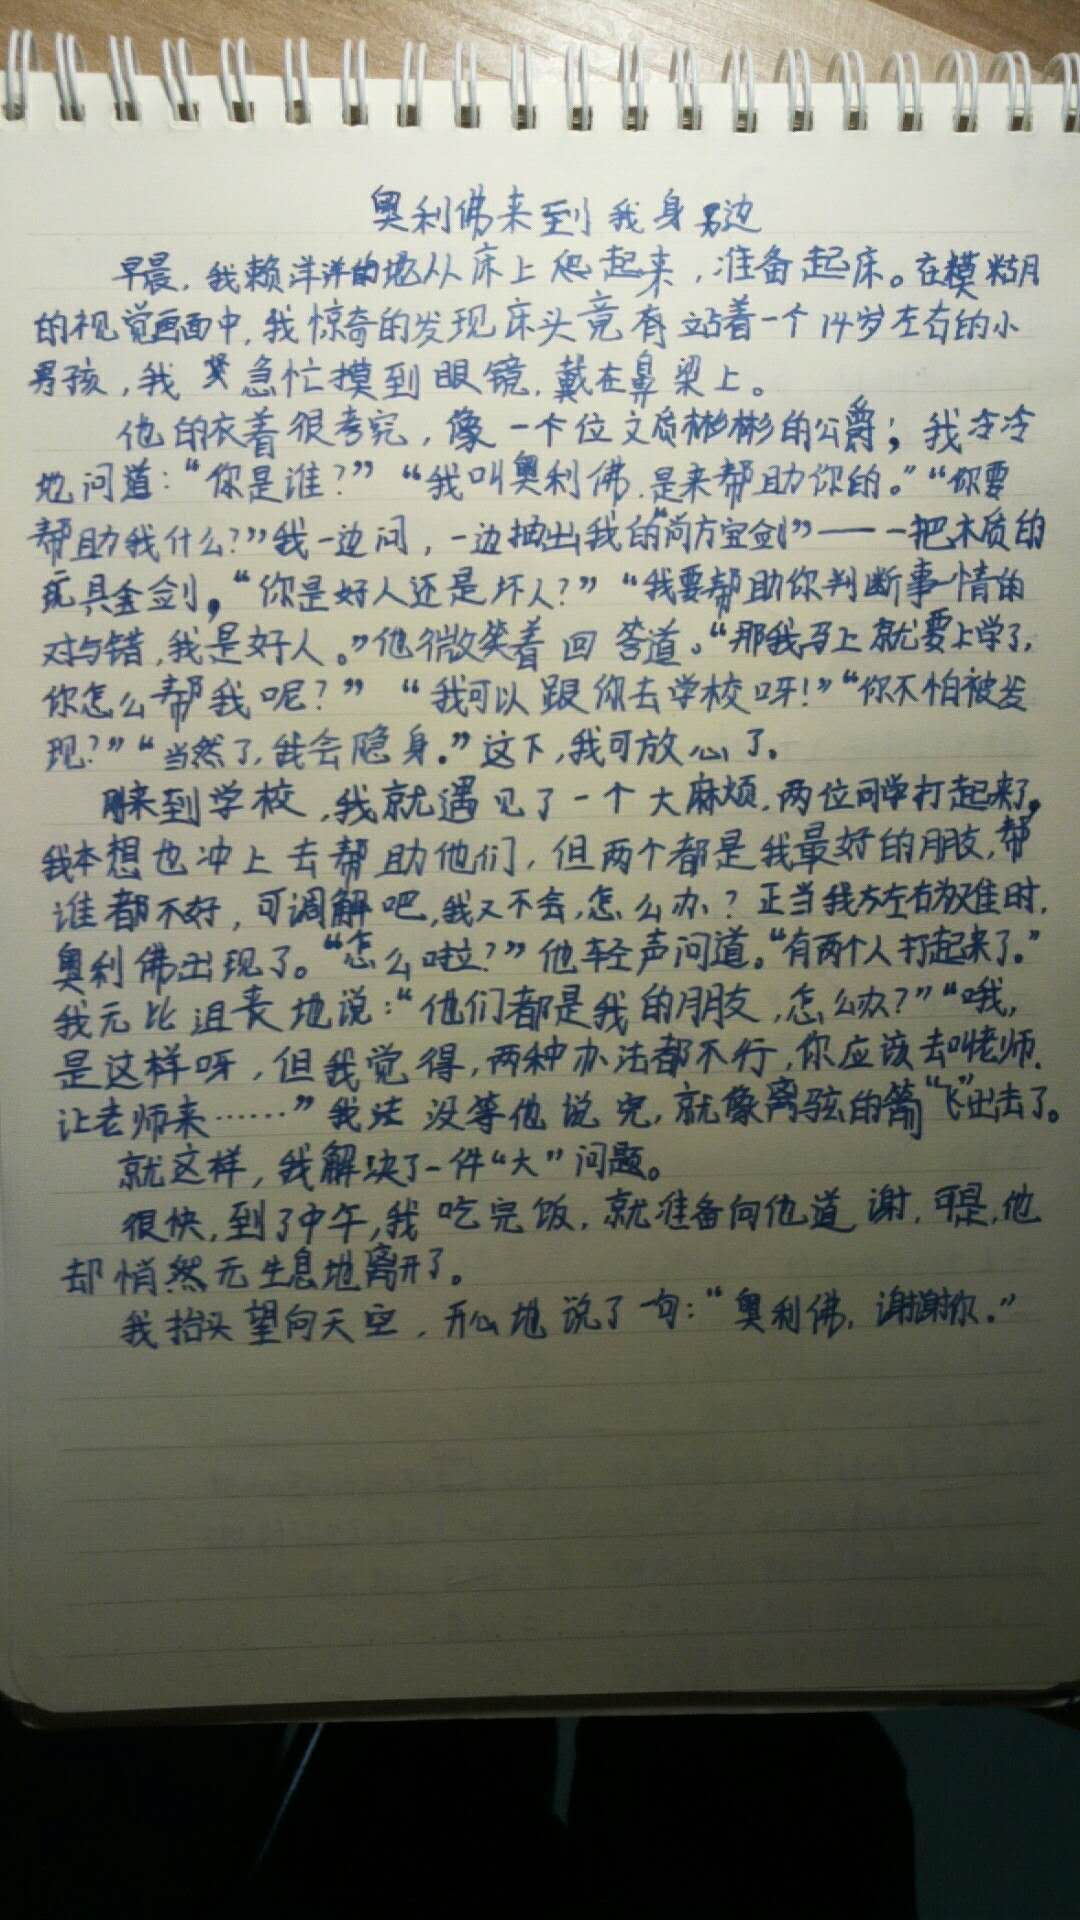 奥利佛来到我身边
早晨，我赖洋洋的地从床上爬起来，准备起床。在模糊
的视觉画面中，我惊奇的发现床头竟有站着一个14岁左右的小
男孩，我紧急忙摸到眼镜，戴在鼻梁上。
他的衣着很考究，像一个位文质彬彬的公爵；我冷冷
地问道：“你是谁？”“我叫奥利佛，是来帮助你的。”“你要
帮助我什么？”我一边问，一边抽出我的“尚方宝剑”——一把木质的
玩具金剑，“你是好人还是坏人？”“我要帮助你判断事情的
对与错，我是好人。”他微笑着回答道。“那我马上就要上学了，
你怎么帮我呢？”“我可以跟你去学校呀！”“你不怕被发
现？”“当然了，我会隐身。”这下，我可放心了。
刚来到学校，我就遇见了一个大麻烦，两位同学打起来了，
我本想也冲上去帮助他们，但两个都是我最好的朋友，帮
谁都不好，可调解吧，我又不会，怎么办？正当我左右为难时，
奥利佛出现了。“怎么啦？”他轻声问道。“有两个人打起来了。”
我无比沮丧地说：“他们都是我的朋友，怎么办？”“哦，
是这样呀，但我觉得，两种办法都不行，你应该去叫老师，
让老师来……”我没等他说完，就像离弦的箭“飞”出去了。
就这样，我解决了一件“大”问题。
很快，到了中午，我吃完饭，就准备向他道谢，可是，他
却悄然无生息地离开了。
我抬头望向天空，开心地说了一句：“奥利佛，谢谢你。”